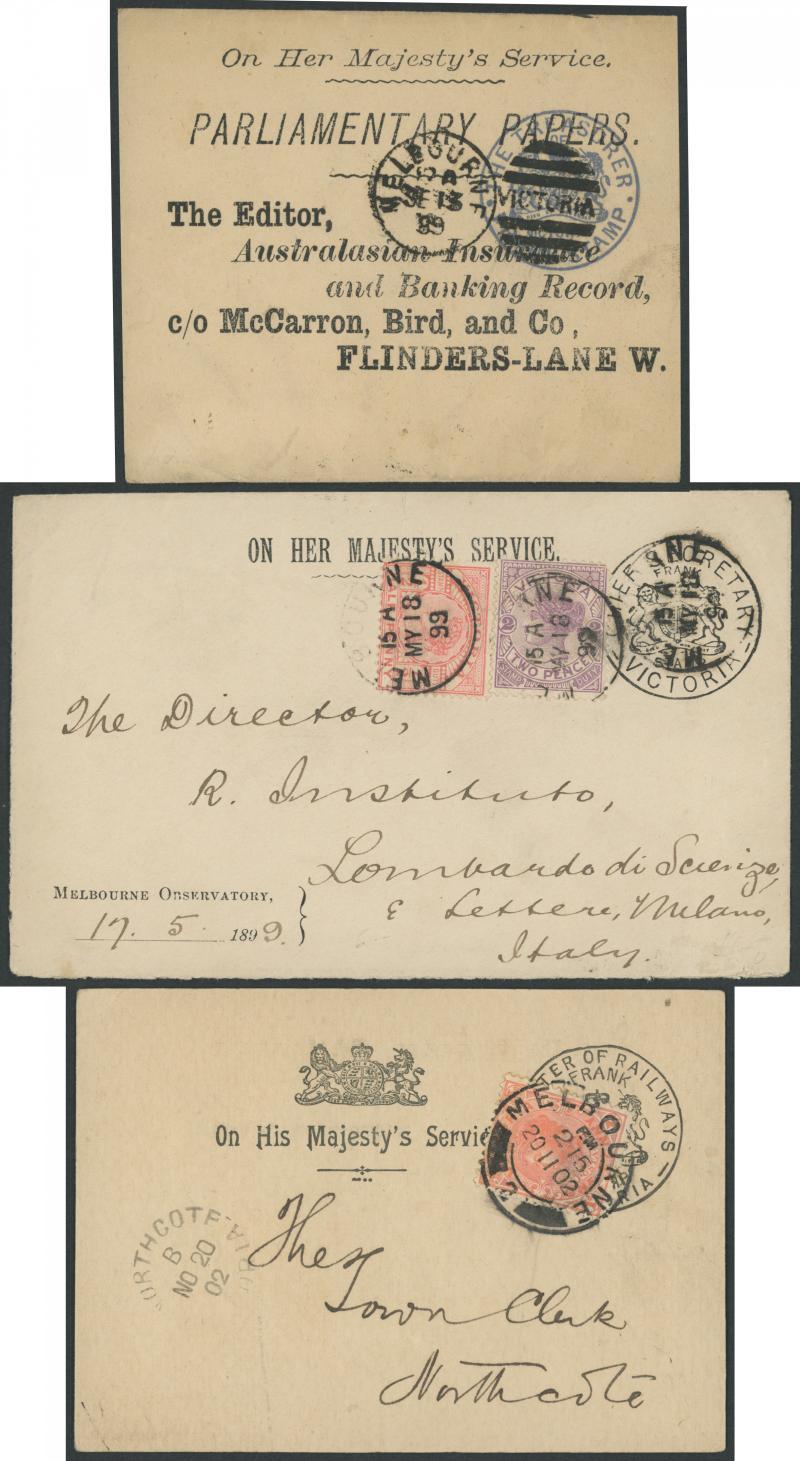 On Her Majesty's Service.
PARLIAMENTARY PAPERS.
THE TREASURER
STAMP.
MELBOURNE
12 A
SE 13
99
VICTORIA
The Editor,
Australasian Insurance
and Banking Record,
c/o McCarron, Bird, and Co.,
FLINDERS-LANE W.
ON HER MAJESTY'S SERVICE.
MELBOURNE
15 A
MY 18
99
2
TWO PENCE
15 A
MY 18
99
CHIEF SECRETARY
FRANK
STAMP
VICTORIA
15 A
MY 18
99
The Director,
R. Instituto,
Lombardo di Scienze,
& Lettere, Milano,
Italy.
MELBOURNE OBSERVATORY,
17. 5. 1899.
On His Majesty's Service
MINISTER OF RAILWAYS
FRANK
VICTORIA
MELBOURNE
2-15 PM
20 11 02
2
NORTHCOTE
B
NO 20
02
The
Town Clerk
Northcote